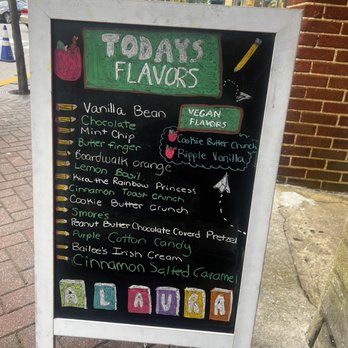 TODAYS
FLAVORS
Vanilla Bean
Chocolate
Mint Chip
Butter finger
Boardwalk orange
Lemon Basil
Kira the Rainbow Princess
Cinnamon Toast Crunch
Cookie Butter Crunch
Smore's
Peanut Butter Chocolate Coverd Pretzel
Purple Cotton Candy
Bailee's Irish Cream
Cinnamon Salted Caramel
VEGAN
FLAVORS
Cookie Butter Crunch
Ripple Vanilla
ALAURA